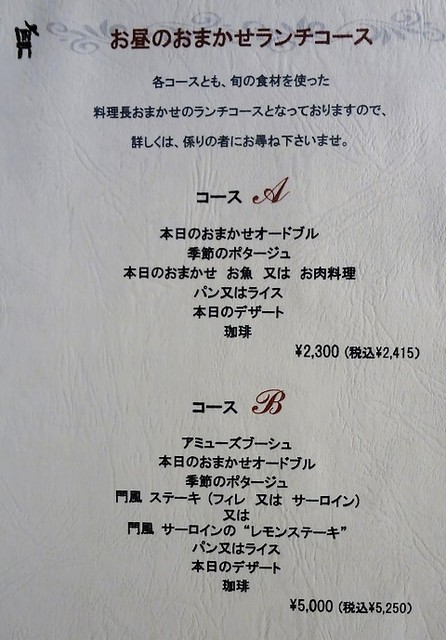 お昼のおまかせランチコース
各コースとも、旬の食材を使った
料理長おまかせのランチコースとなっておりますので、
詳しくは、係りの者にお尋ね下さいませ。
コース A
本日のおまかせオードブル
季節のポタージュ
本日のおまかせ お魚 又は お肉料理
パン又はライス
本日のデザート
珈琲
¥2,300 (税込¥2,415)
コース B
アミューズブーシュ
本日のおまかせオードブル
季節のポタージュ
門風 ステーキ (フィレ 又は サーロイン)
又は
門風 サーロインの “レモンステーキ”
パン又はライス
本日のデザート
珈琲
¥5,000 (税込¥5,250)